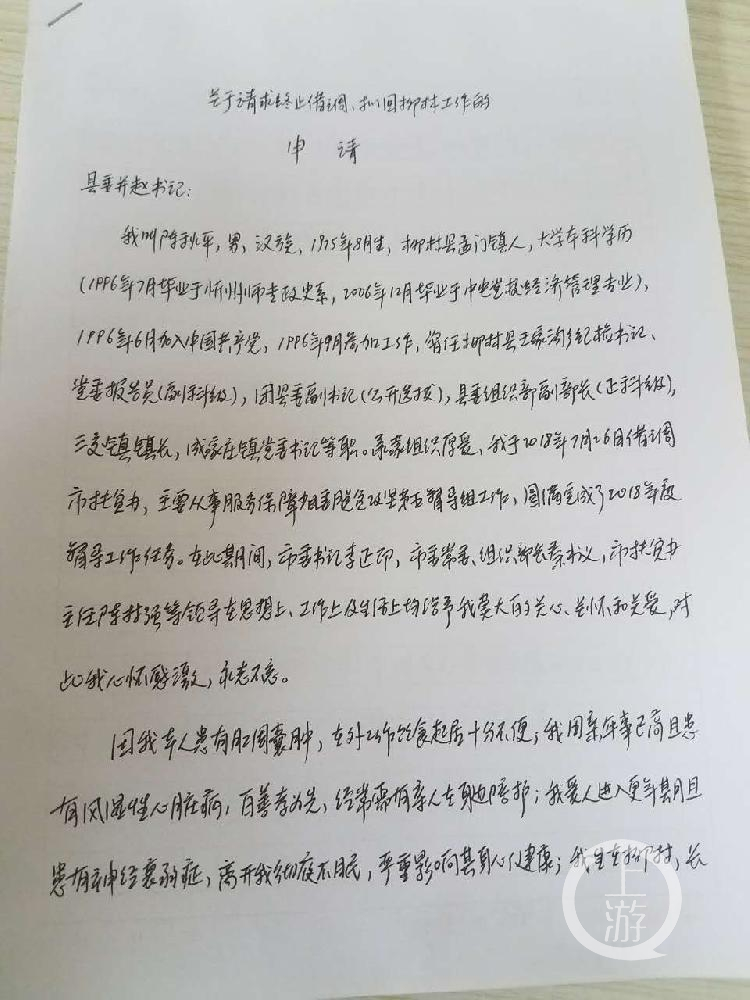 关于请求终止借调、拟回柳林工作的
申请
县委并赵书记:
我叫陈秋平, 男, 汉族, 1975年8月生, 柳林县孟门镇人, 大学本科学历
(1996年7月毕业于忻州师专政史系, 2006年12月毕业于中央党校经济管理专业),
1996年6月加入中国共产党, 1996年9月参加工作, 曾任柳林县王家沟乡纪检书记、
党委报告员(副科级), 团县委副书记(公开选拔), 县委组织部副部长(正科级),
三交镇镇长, 成家庄镇党委书记等职。承蒙组织厚爱, 我于2018年7月26日借调
市扶贫办, 主要从事服务保障省委脱贫攻坚第五督导组工作, 圆满完成了2018年度
督导工作任务。在此期间, 市委书记李正印, 市委常委、组织部长秦书义, 市扶贫办
主任陈林强等领导在思想上、工作上及生活上均给予我莫大的关心、关怀和关爱, 对
此我心怀感激, 永志不忘。
因我本人患有肛周囊肿, 在外工作饮食起居十分不便; 我母亲年事已高且患
有风湿性心脏病, 百善孝为先, 经常需有亲人在身边陪护; 我爱人进入更年期且
患有神经衰弱症, 离开我彻夜不眠, 严重影响其身心健康; 我生在柳林, 长
上游